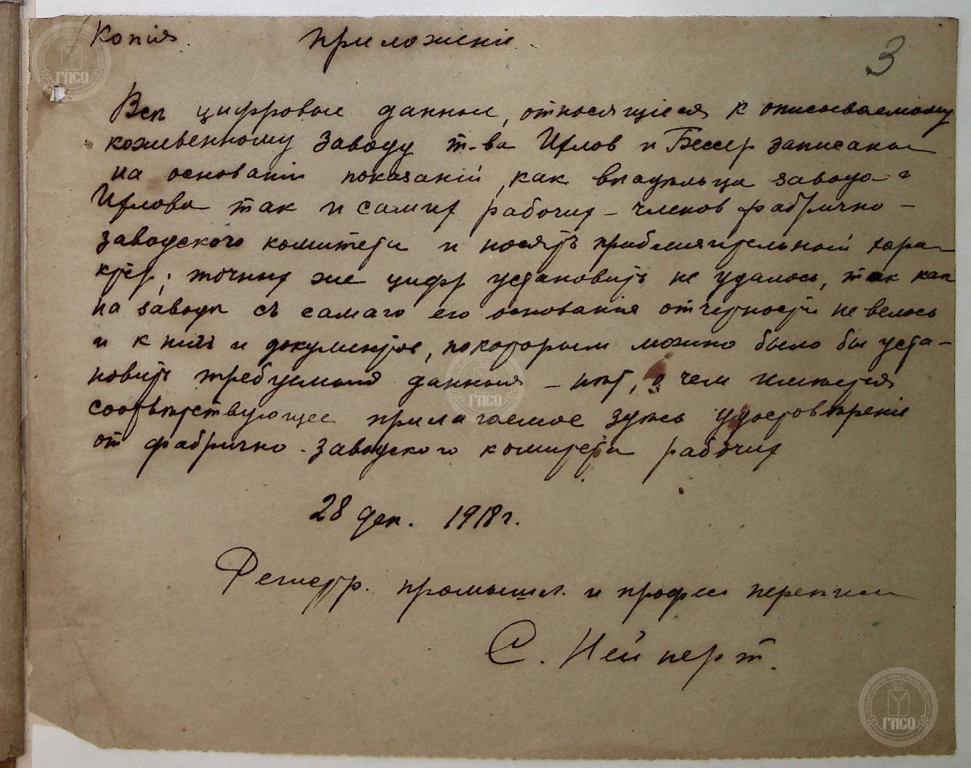 Копія. Приложеніе.
3
Всѣ цифровые данные, относящіеся к описываемому
кожевенному заводу т-ва Иевлов и Бессер записаны
на основаніи показаній, как владѣльца завода г
так и самих рабочих – членов фабрично-
заводского комитета и носят приблизительный хара-
ктер; точных же цифр установить не удалось, так как
на заводѣ съ самаго его основанія отчетности не велось
и к ним и документов, по которым можно было бы уста-
новить требуемыя данныя – нѣт, о чем имѣется
соотвѣтствующее прилагаемое здѣсь удостовѣреніе
от фабрично-заводского комитета рабочих
28 дек. 1918 г.
Регистр. промышл. и професс переписи
С. Нейперт.
ГАСО
ГАСО